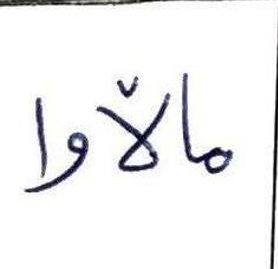 ماڵاوا